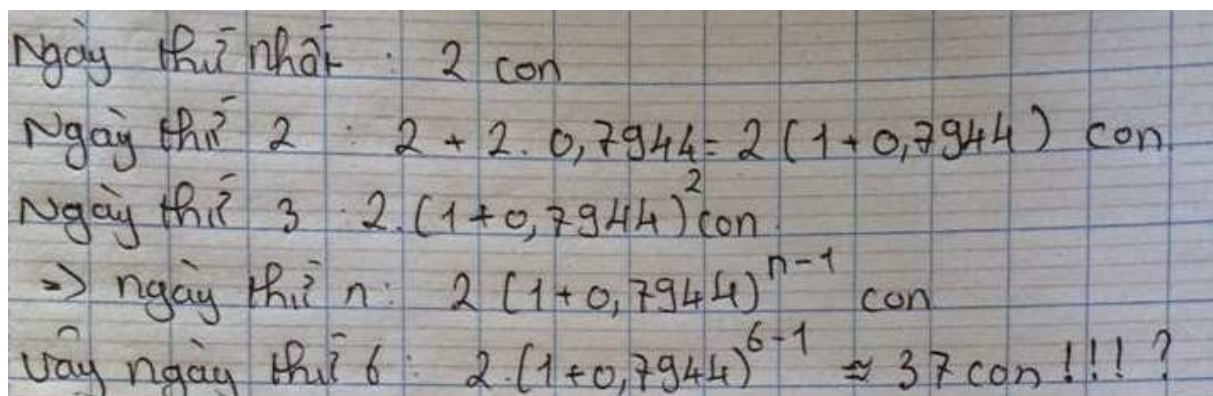 Ngày thứ nhất : 2 con
Ngày thứ 2 : 2 + 2. 0,7944 = 2 (1 + 0,7944) con
Ngày thứ 3 : 2.(1 + 0,7944)² con
=> ngày thứ n: 2 (1 + 0,7944)ⁿ⁻¹ con
Vậy ngày thứ 6 : 2.(1 + 0,7944)⁶⁻¹ ≈ 37 con !!! ?